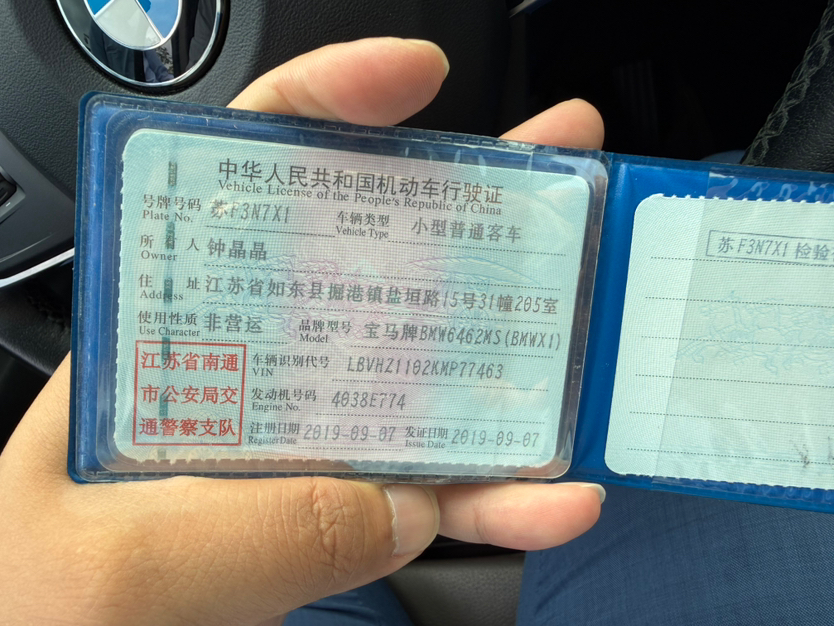 中华人民共和国机动车行驶证
Vehicle License of the People's Republic of China
号牌号码 苏F3N7X1 车辆类型 小型普通客车
Plate No. Vehicle Type
所有人 钟晶晶
Owner
住址 江苏省如东县掘港镇盐垣路15号31幢205室
Address
使用性质 非营运 品牌型号 宝马牌BMW6462MS(BMWX1)
Use Character Model
江苏省南通
市公安局交
通警察支队
车辆识别代号 LBVHZ1102KMP77463
VIN
发动机号码 4038E774
Engine No.
注册日期 2019-09-07 发证日期 2019-09-07
Register Date Issue Date
苏F3N7X1 检验